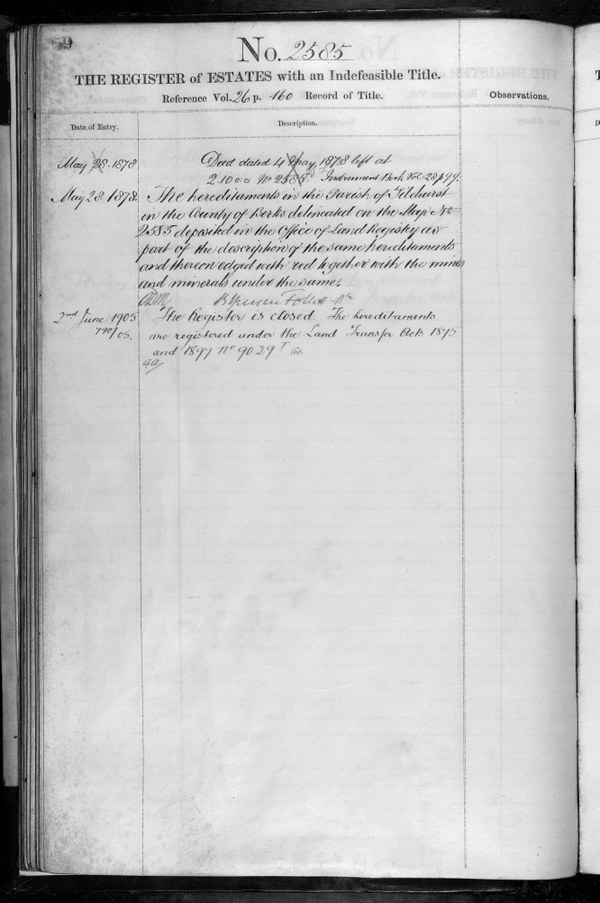 No. 2585
THE REGISTER of ESTATES with an Indefeasible Title.
Reference Vol. 26 p. 160 Record of Title.
Observations.
Date of Entry.
Description.
May 28 1878
Deed dated 4 May 1878 left at
2.10 No 2585 Instrument Book Vol 28 p 99.
May 28 1878.
The hereditaments in the Parish of Tilehurst
in the County of Berks delineated on the Map No
2585 deposited in the Office of Land Registry as
part of the description of the same hereditaments
and thereon edged with red together with the mines
and minerals under the same.
2nd June 1905
The Register is closed The hereditaments
05.
are registered under the Land Transfer Acts 1875
and 1897 No 9029